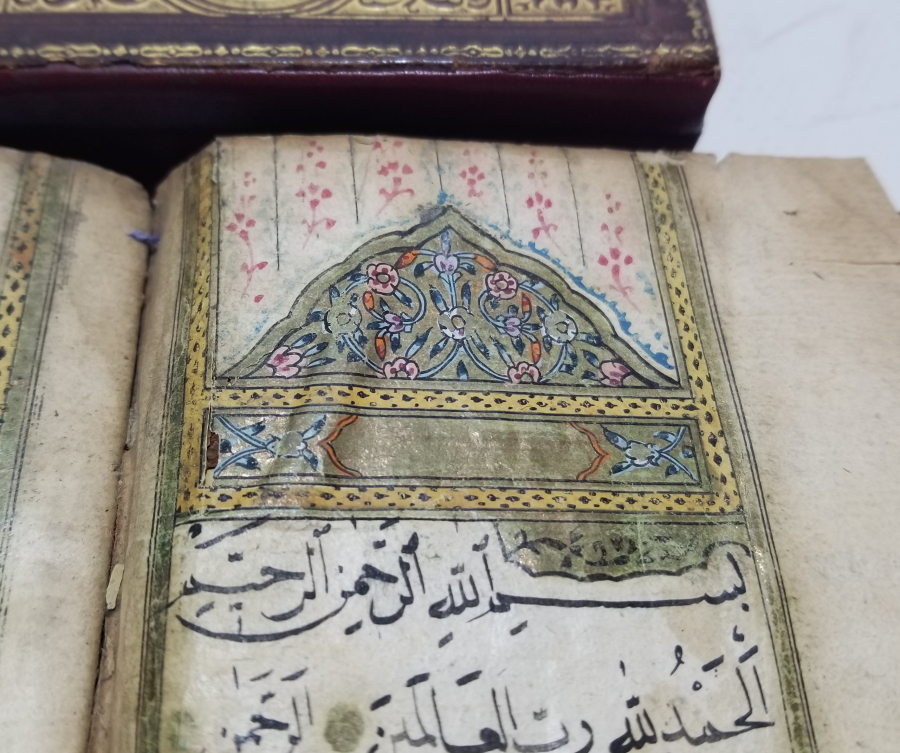 بِسْمِ اللّٰهِ الرَّحْمٰنِ الرَّحِيْمِ
اَلْحَمْدُ لِلّٰهِ رَبِّ الْعَالَمِيْنَ الرَّحْمٰنِ